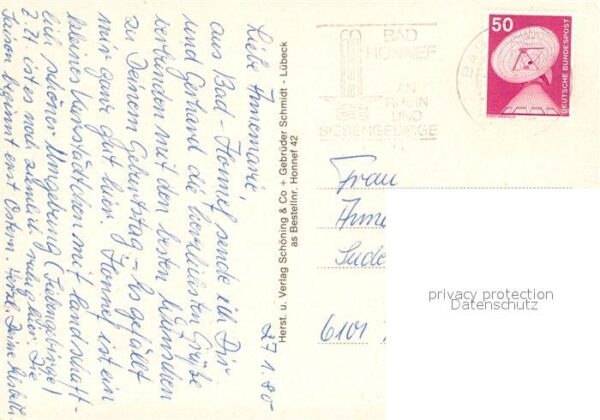 27.1.80
Liebe Annemarie!
aus Bad-Honnef sende ich Dir
und Gerhard die herzlichsten Grüße
verbunden mit den besten Wünschen
zu Deinem Geburtstag – Es gefällt
mir ganz gut hier. Honnef ist ein
kleines Kurstädtchen mit landschaft-
lich schöner Umgebung (Siebengebirge)
z. Zt. ist es noch ziemlich ruhig hier. Die
Saison beginnt erst Ostern. Herzl. Deine
Herst. u. Verlag Schöning & Co + Gebrüder Schmidt - Lübeck
as Bestellnr. Honnef 42
BAD
HONNEF
AM
RHEIN
UND
SIEBENGEBIRGE
BAD
50
DEUTSCHE BUNDESPOST
Frau
Anne
Sude
6101
privacy protection
Datenschutz